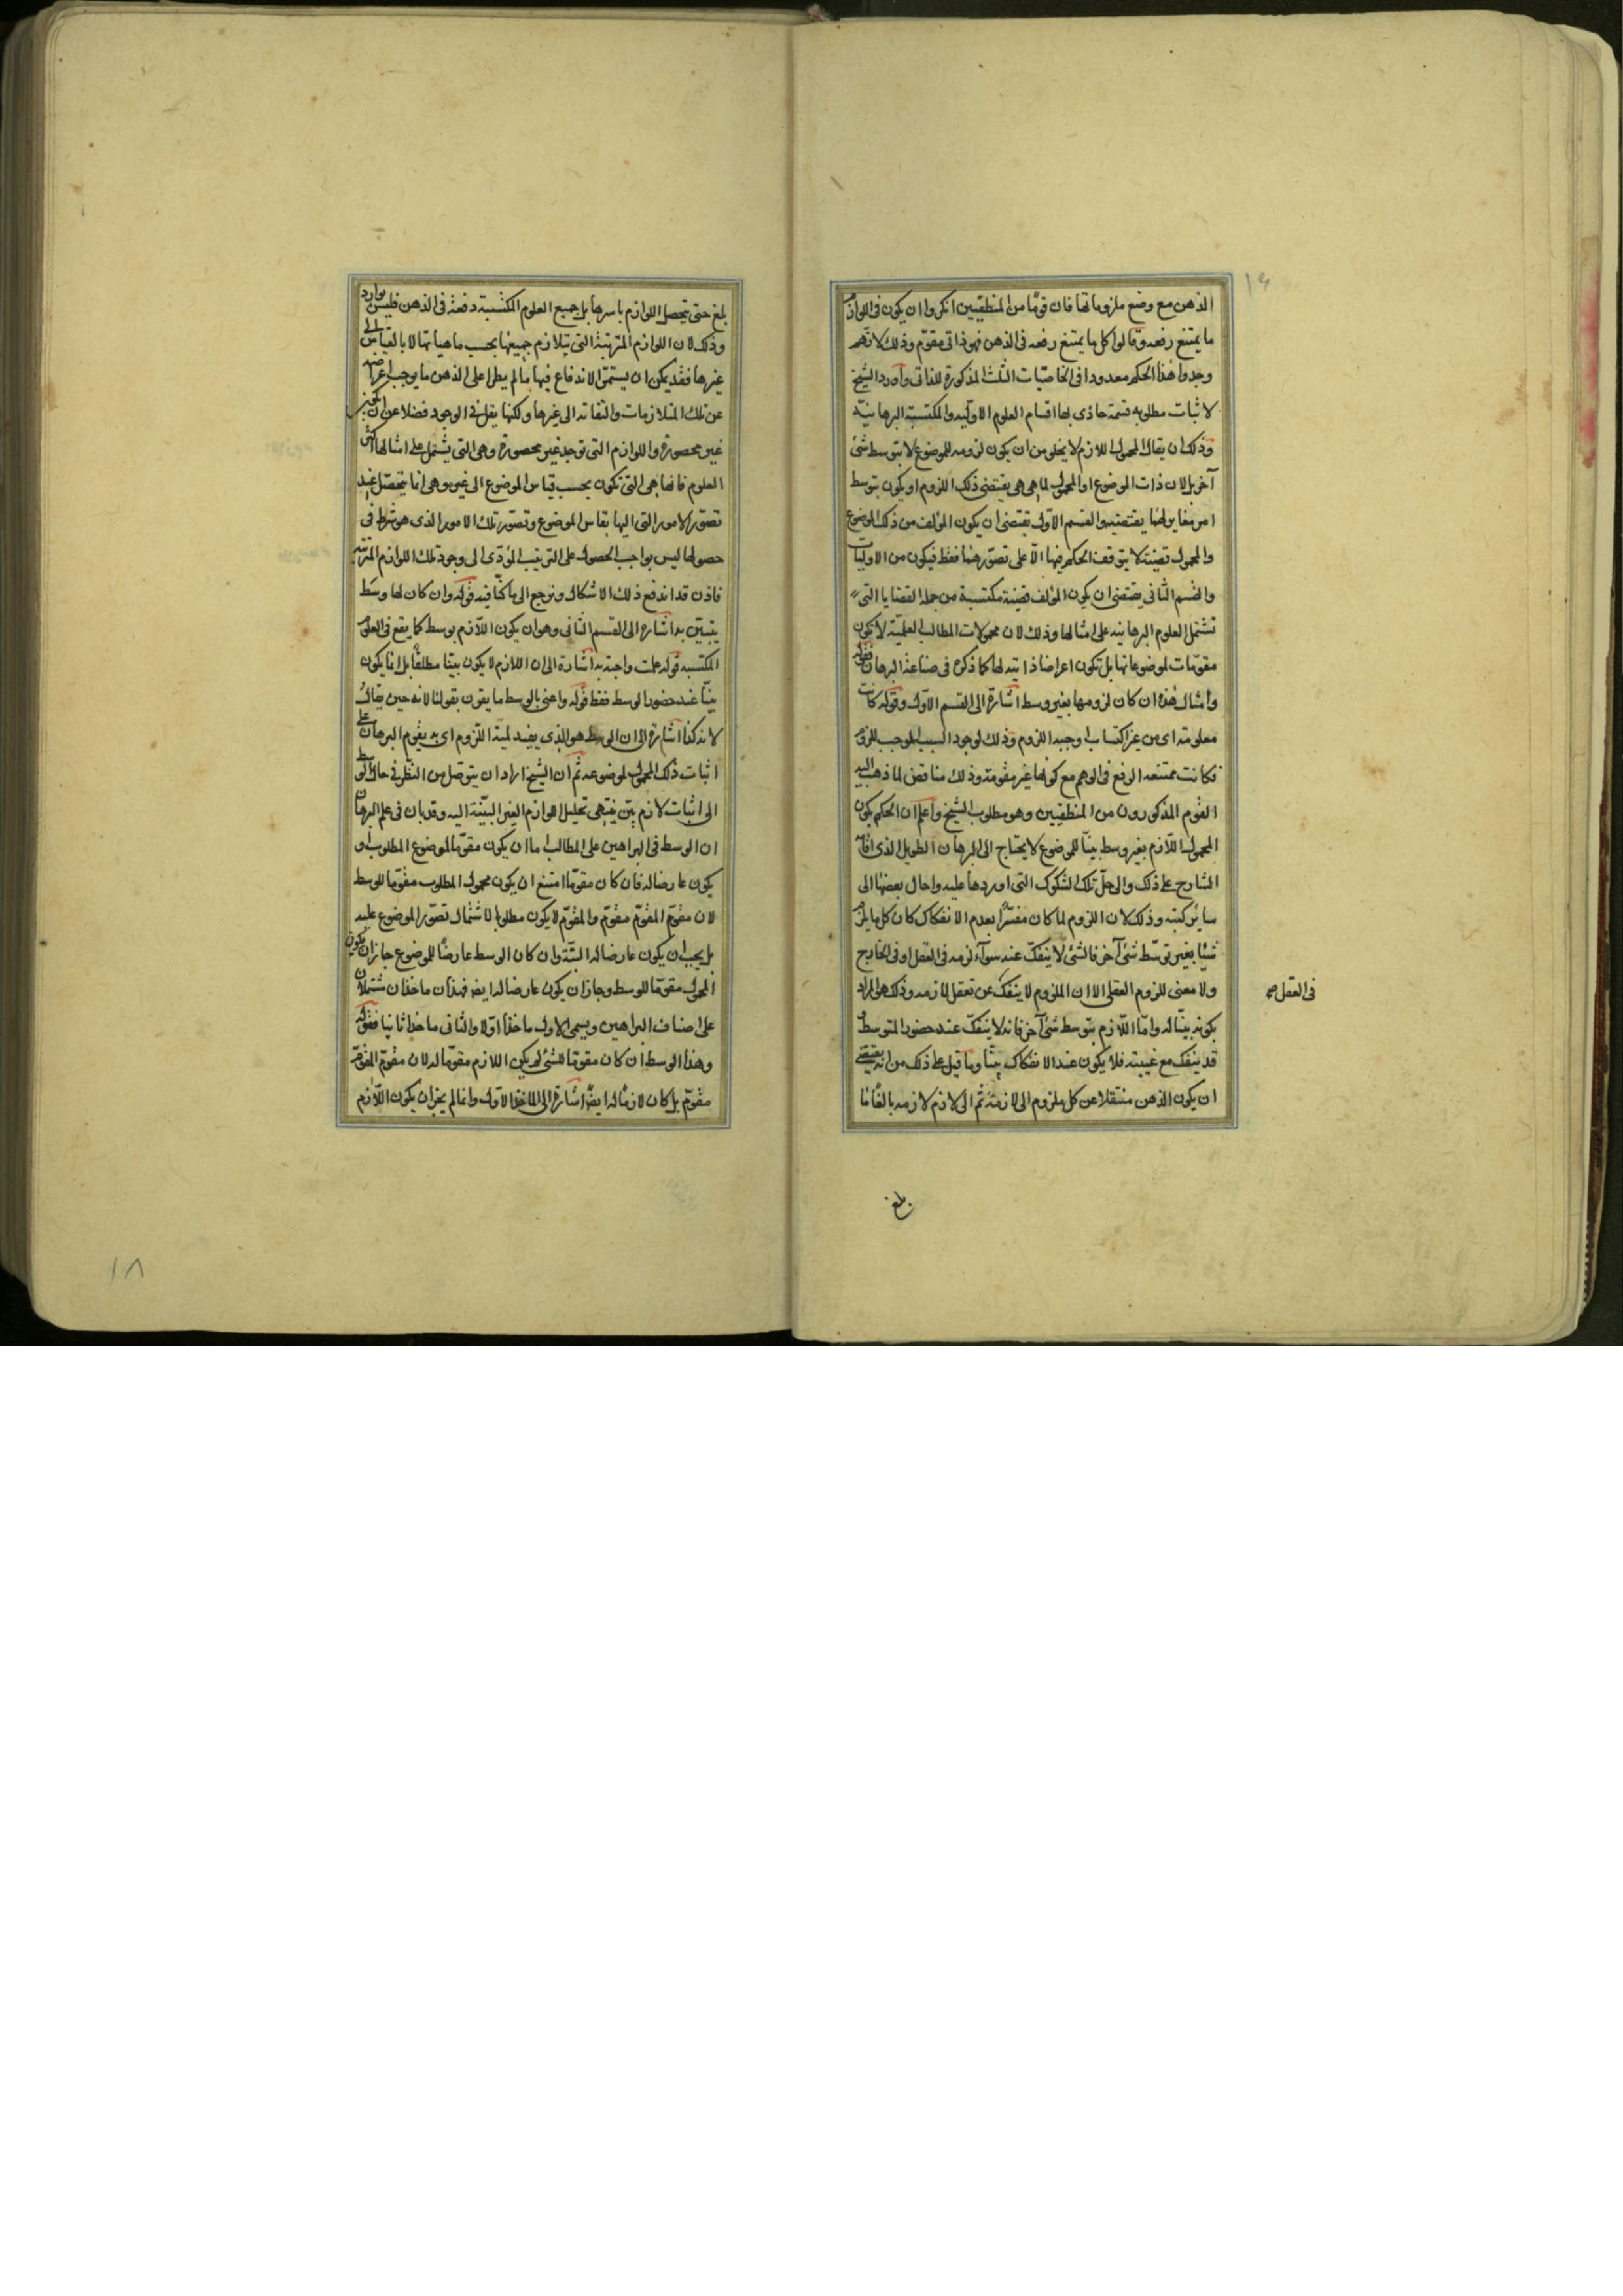 الذهن مع وضع ملزوماتها فان قومًا من المنطقيين انكروا ان يكون فى اللوازم
ما يمتنع رفعه وقالوا كل ما يمتنع رفعه فى الذهن فهو ذاتى مقوّم وذلك لانهم
وجدوا هذا الحكم معدودا فى الخاصيّات الثلث المذكورة للذاتى وآورد الشيخ
لاثبات مطلوبه قسمة حاذى بها اقسام العلوم الاوليه والمكتسبة البرهانيّه
وذلك ان يقال المحمول اللازم لا يخلو من ان يكون لزومه للموضوع لا بتوسط شئ
آخر بل لان ذات الموضوع او المحمول لما هى هى يقتضى ذلك اللزوم او يكون بتوسط
امر مغاير لهما يقتضيه والقسم الاول يقتضى ان يكون المؤلف من ذلك الموضوع
والمحمول قضية لا يتوقف الحكم فيها الّا على تصوّرهما فقط فيكون من الاوليات
والقسم الثانى يقتضى ان يكون المؤلف قضية مكتسبة من جملة القضايا التى
تشتمل العلوم البرهانيه على امثالها وذلك لان محمولات المطالب العلميّة لا تكون
مقومّات لموضوعاتها بل تكون اعراضا ذاتيه لها كما ذكر فى صناعة البرهان فقوله
وامثال هذه ان كان لزومها بغير وسط اشارة الى القسم الاول وقوله كانت
معلومة اى من غير اكتساب واجبه اللزوم وذلك لوجود السبب الموجب للزوم
فكانت ممتنعه الرفع فى الوهم مع كونها غير مقومة وذلك مناقض لما ذهب اليه
القوم المذكورون من المنطقيين وهو مطلوب الشيخ واعلم ان الحكم بكون
المحمول اللّازم بغير وسط بينّا للموضوع لا يحتاج الى البرهان الطويل الذى اقامه
الشارح على ذلك والى حلّ تلك الشكوك التى اوردها عليه واحال بعضها الى
سائر كتبه وذلك لان اللزوم لما كان مفسّرًا بعدم الانفكاك كان كل ما يلزم
شيئا بغير توسّط شئ آخر فالشئ لا ينفكّ عنه سوآء لزمه فى العقل او فى الخارج
ولا معنى للزوم العقلى الا ان الملزوم لا ينفكّ عن تعقل لازمه وذلك هو المراد
فى العقل صح
بكونه بيّنا له وامّا اللّازم بتوسط شئ آخر فانه لا ينفكّ عند حضور المتوسط و
قد ينفك مع غيبته فلا يكون عند الانفكاك بينّا وما قيل على ذلك من انه يقتضى
ان يكون الذهن منتقلا عن كل ملزوم الى لازمه ثم الى لازم لازمه بالغًا ما
بلغ
بلغ حتى تحصل اللوازم باسرها بل جميع العلوم المكتسبة دفعة فى الذهن فليس بوارد
وذلك لان اللوازم المترتبة التى يتلازم جميعها بحسب ماهياتها لا بالقياس الى
غيرها فقد يمكن ان يستمرّ الاندفاع فيها ما لم يطرا على الذهن ما يوجب اعراضه
عن تلك المتلازمات والتفاته الى غيرها ولكنها يقل فى الوجود فضلا عن ان تكون
غير محصورة واللوازم التى توجد غير محصورة وهى التى يشتمل على امثالها اكثر
العلوم فانها هى التى تكون بحسب قياس الموضوع الى غيره وهى انما يتحصّل عند
تصوّر الامور التى اليها يقاس الموضوع وتصوّر تلك الامور الذى هو شرط فى
حصولها ليس بواجب الحصول على الترتيب المؤدّى الى وجود تلك اللوازم المترتبة
فاذن قد اندفع ذلك الاشكال ونرجع الى ما كنّا فيه قوله وان كان لها وسَط
يتبيّن به اشارة الى القسم الثانى وهو ان يكون اللّازم بوسط كما يقع فى العلوم
المكتسبه قوله علمت واجبة به اشارة الى ان اللازم لا يكون بيّنا مطلقًا بل انما يكون
بينّا عند حضور الوسط فقط قوله واعنى بالوسط ما يقرن بقولنا لانه حين يقال
لانه كذا اشارة الى ان الوسط هو الذى يفيد لمية اللّزوم اى به يقوم البرهان على
اثبات ذلك المحمول لموضوعه ثم ان الشيخ اراد ان يتوصّل من النظر فى حال الوسط
الى اثبات لازم بيّن ينتهى تحليل اللوازم الغير البيّنة اليه وقد بان فى علم البرهان
ان الوسط فى البراهين على المطالب اما ان يكون مقوّما للموضوع المطلوب او
يكون عارضا له فان كان مقوّما امتنع ان يكون محمول المطلوب مقوّما للوسط
لان مقوّم المقوّم مقوّم والمقوّم لا يكون مطلوبا لاشتمال تصوّر الموضوع عليه
بل يجب ان يكون عارضا له البتّة وان كان الوسط عارضًا للموضوع جاز ان يكون
المحمول مقوّما للوسط وجاز ان يكون عارضا له ايضا فهذان ماخذان مشتملان
على اصناف البراهين ويسمى الاول ماخذًا اوّلا والثانى ماخذا ثانيا فقوله
وهذا الوسط ان كان مقوّما للشئ لم يكن اللازم مقوّما له لان مقوّم المقوّم
مقوّم بل كان لازمًا له ايضًا اشارة الى الماخذ الاول وانما لم يجز ان يكون اللّازم
١٨